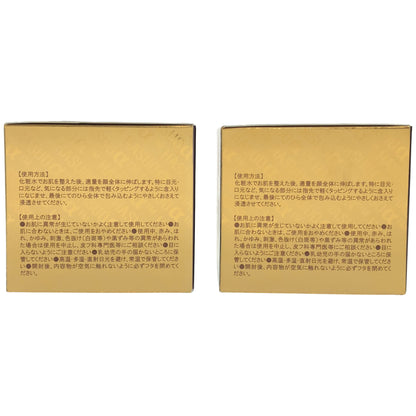 【使用方法】
化粧水でお肌を整えた後、適量を顔全体に伸ばします。特に目元・
口元など、気になる部分には指先で軽くタッピングするように念入り
になじませ、最後にてのひら全体で包み込むようにやさしくおさえて
浸透させてください。
【使用上の注意】
●お肌に異常が生じていないかよく注意して使用してください●お
肌に合わないときは、ご使用をおやめください●使用中、赤み、は
れ、かゆみ、刺激、色抜け(白斑等)や黒ずみ等の異常があらわれ
た場合は使用を中止し、皮フ科専門医等にご相談ください●目に
入らないようにご注意ください●乳幼児の手の届かないところに保
管してください●高温・多湿・直射日光を避け、常温で保管してくだ
さい●開封後、内容物が空気に触れないように必ずフタを閉めてく
ださい。
【使用方法】
化粧水でお肌を整えた後、適量を顔全体に伸ばします。特に目元・
口元など、気になる部分には指先で軽くタッピングするように念入り
になじませ、最後にてのひら全体で包み込むようにやさしくおさえて
浸透させてください。
【使用上の注意】
●お肌に異常が生じていないかよく注意して使用してください●お
肌に合わないときは、ご使用をおやめください●使用中、赤み、は
れ、かゆみ、刺激、色抜け(白斑等)や黒ずみ等の異常があらわれ
た場合は使用を中止し、皮フ科専門医等にご相談ください●目に
入らないようにご注意ください●乳幼児の手の届かないところに保
管してください●高温・多湿・直射日光を避け、常温で保管してくだ
さい●開封後、内容物が空気に触れないように必ずフタを閉めてく
ださい。